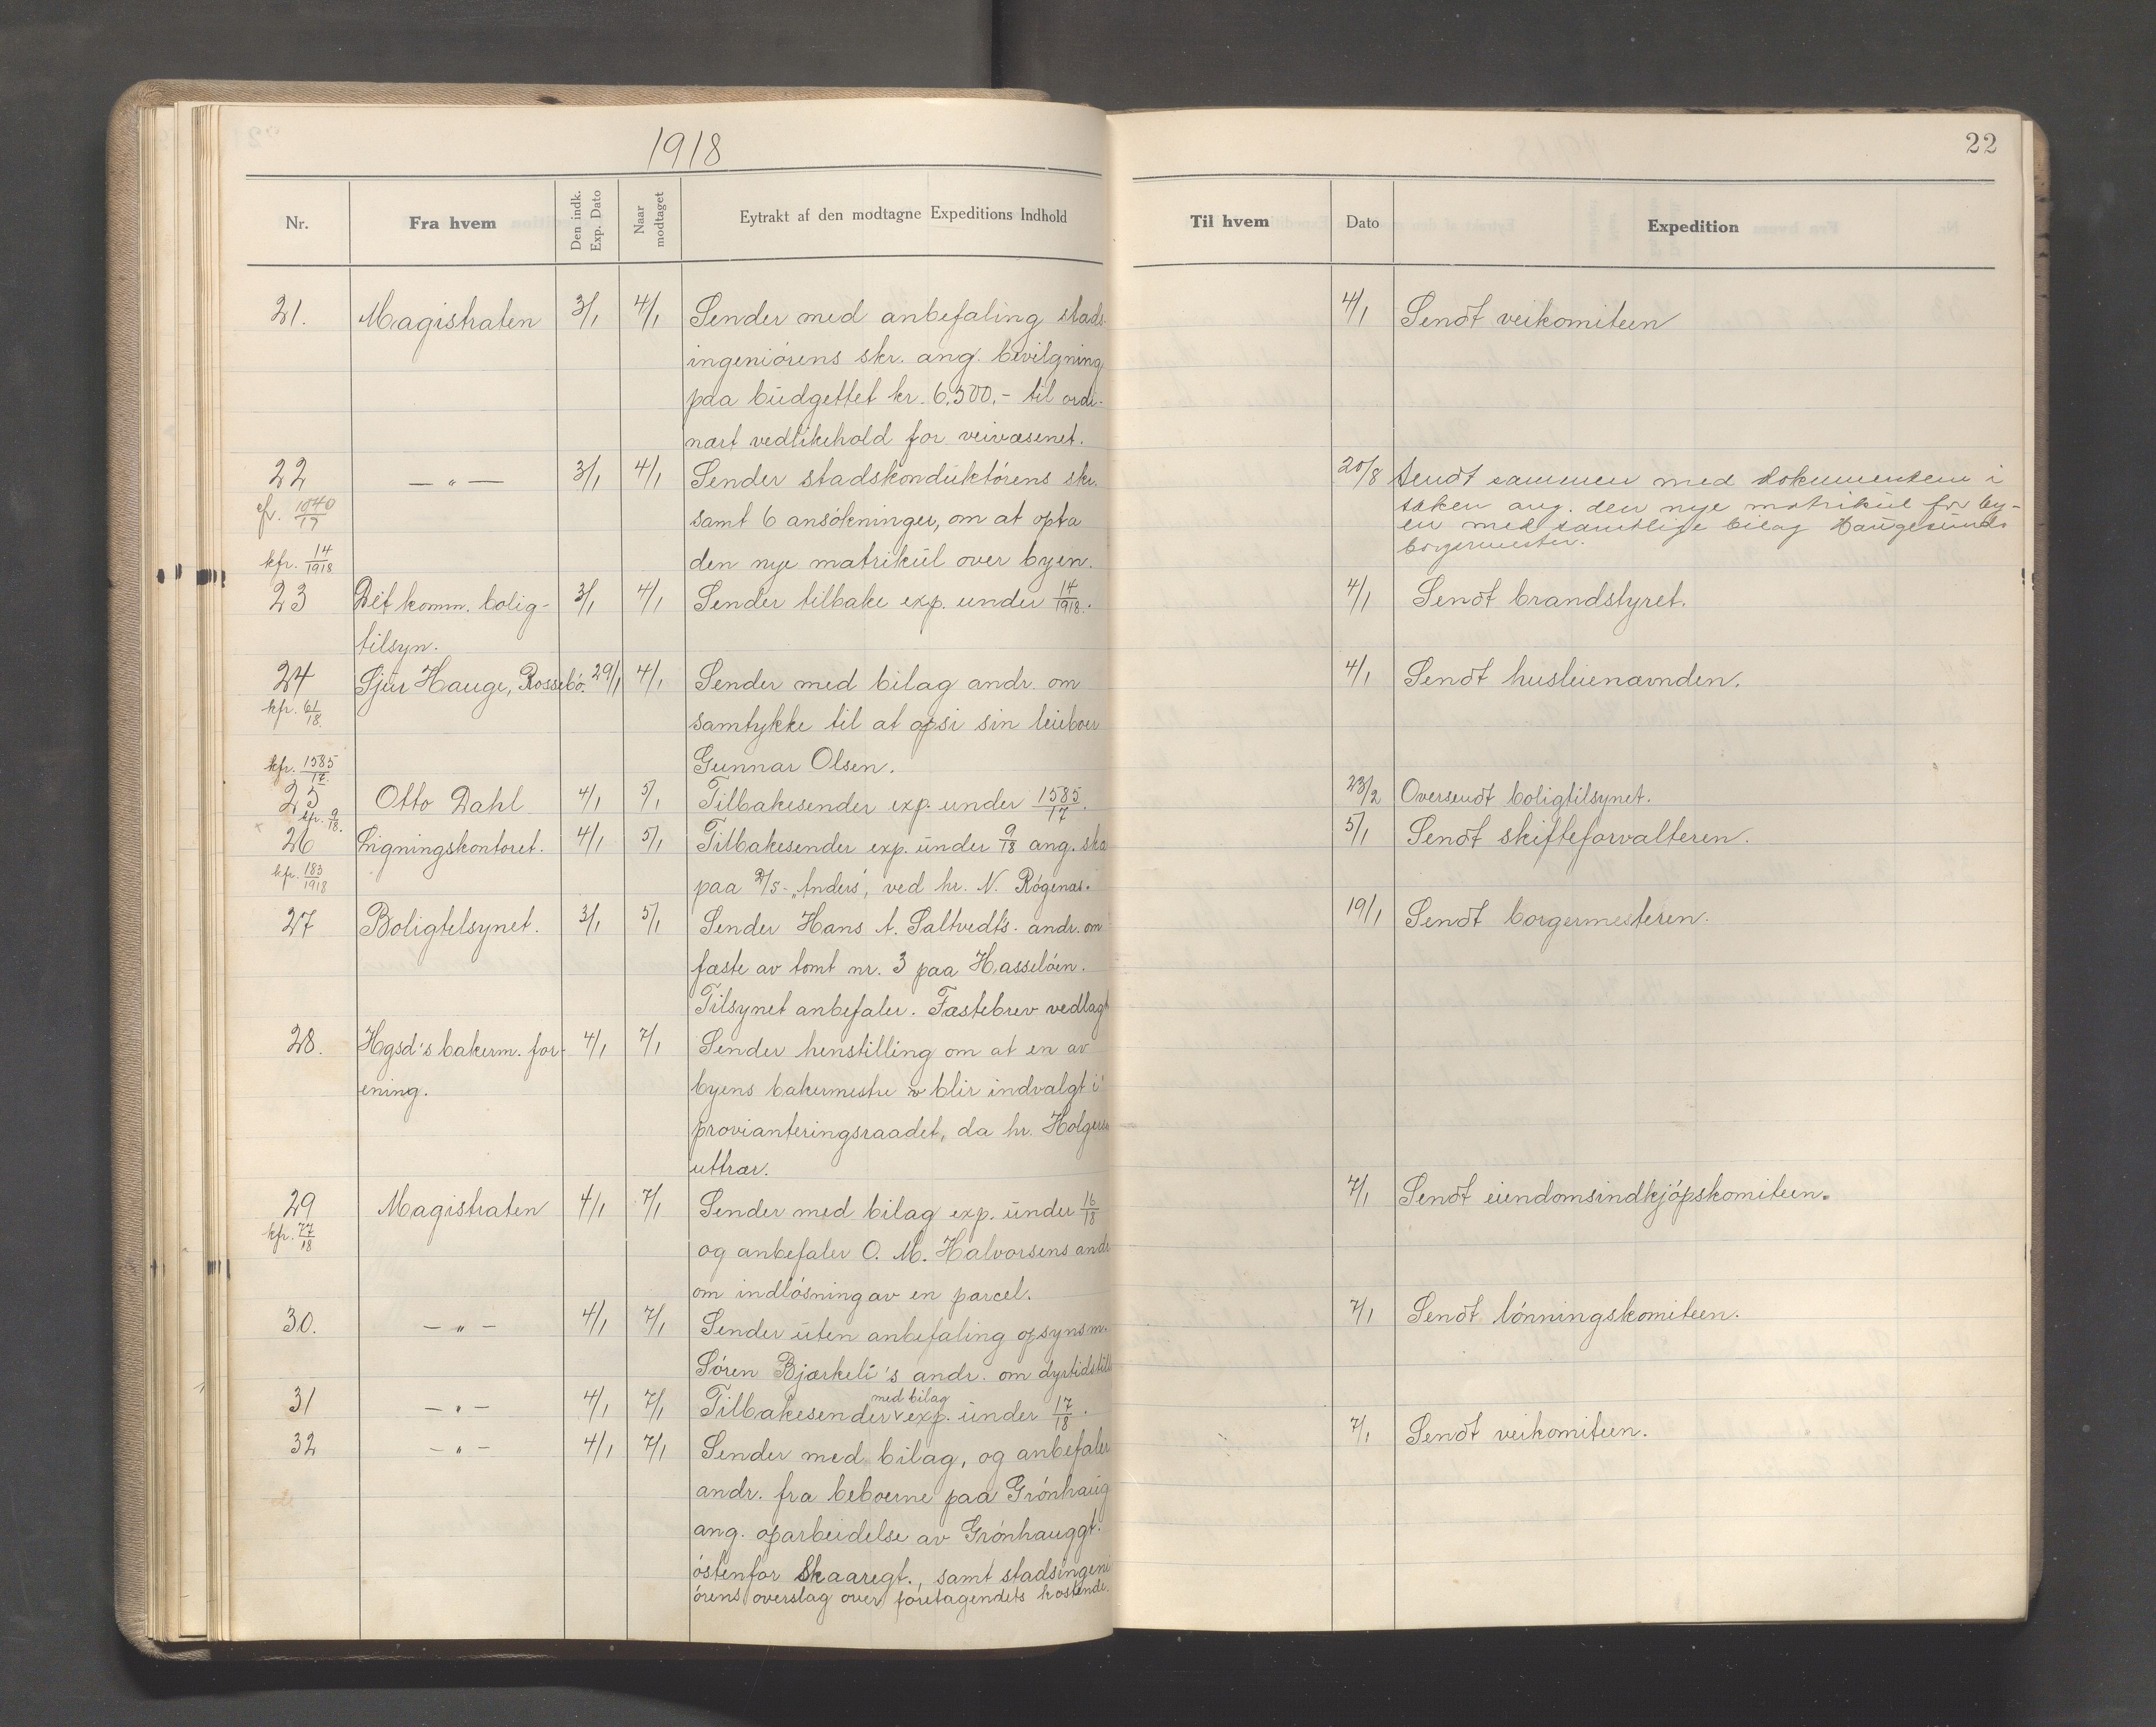 1918
22
Nr.
Fra hvem
Den indk. Exp. Dato
Naar modtaget
Eytrakt af den modtagne Expeditions Indhold
Til hvem
Dato
Expedition
21. Magistraten 3/1 4/1 Sender med anbefaling stads-
ingeniörens skr. ang. bevilgning
paa budgettet kr. 6.500.- til ordi-
nært vedlikehold for veivæsenet.
4/1 Sendt veikomiteen
22 — " — 3/1 4/1 Sender stadskonduktörens skr.
cfr. 1040/17 samt 6 ansökninger, om at opta
kfr. 14/1918 den nye matrikul over byen.
20/8 Sendt sammen med dokumentene i
saken ang. den nye matrikul for by-
en med samtlige bilag Haugesunds
borgermester.
23 Det komm. bolig- 3/1 4/1 Sender tilbake exp. under 14/1918.
tilsyn.
4/1 Sendt brandstyret.
24 Sjur Hauge, Rossebö. 29/1 4/1 Sender med bilag andr. om
kfr. 61/18. samtykke til at opsi sin leieboer
Gunnar Olsen.
4/1 Sendt husleienævnden.
kfr. 1585/17.
25 Otto Dahl 4/1 5/1 Tilbakesender exp. under 1585/17.
23/2 Oversendt boligtilsynet.
kfr. 9/18.
26 Ligningskontoret. 4/1 5/1 Tilbakesender exp. under 9/18 ang. ska
kfr. 183/1918 paa D/S- „Anders", ved hr. N. Rögenæs.
5/1 Sendt skifteforvalteren.
27 Boligtilsynet. 3/1 5/1 Sender Hans A. Saltvedt's andr. om
fæste av tomt nr. 3 paa Hasselöen.
Tilsynet anbefaler. Fæstebrev vedlagt
19/1 Sendt borgermesteren.
28. Hgsd's bakerm. for- 4/1 7/1 Sender henstilling om at en av
ening. byens bakermestre blir indvalgt i
provianteringsraadet, da hr. Holgersen
uttrær.
29 Magistraten 4/1 7/1 Sender med bilag exp. under 16/18
kfr. 77/18 og anbefaler O. M. Halvorsens andr
om indlösning av en parcel.
7/1 Sendt eiendomsindkjöpskomiteen.
30. — " — 4/1 7/1 Sender uten anbefaling opsynsm.
Sören Bjærkeli's andr. om dyrtidstill
7/1 Sendt lönningskomiteen.
31 — " — 4/1 7/1 Tilbakesender med bilag exp. under 17/18.
32 — " — 4/1 7/1 Sender med bilag, og anbefaler
andr. fra beboerne paa Grönhaug
ang. oparbeidelse av Grönhauggt.
östenfor Skaaregt., samt stadsingeni
örens overslag over foretagendets kostende.
7/1 Sendt veikomiteen.